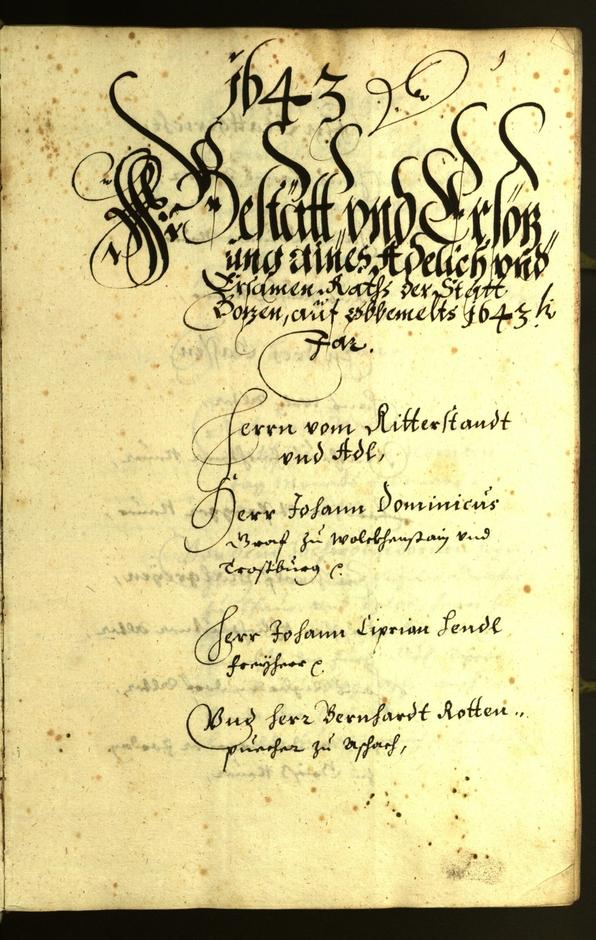 1643
Besätt vnd Ersöz
ung aines Adelich vnd
Ersamen Raths der Statt
Bozen, auf obbemelts 1643 is
Jar.
Herrn vom Ritterstandt
vnd Adl,
Herr Johann Dominicus
Graf zu Wolckhenstain vnd
Trostburg
Herr Johann Ciprian Fendl
Freyherr
Vnd Herr Bernhardt Rotten
puecher zu Aschach,